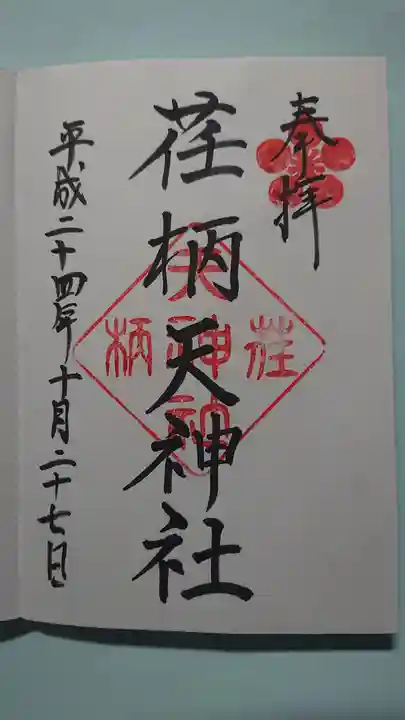 奉拝
荏柄天神社
平成二十四年十月二十七日
荏柄天神社